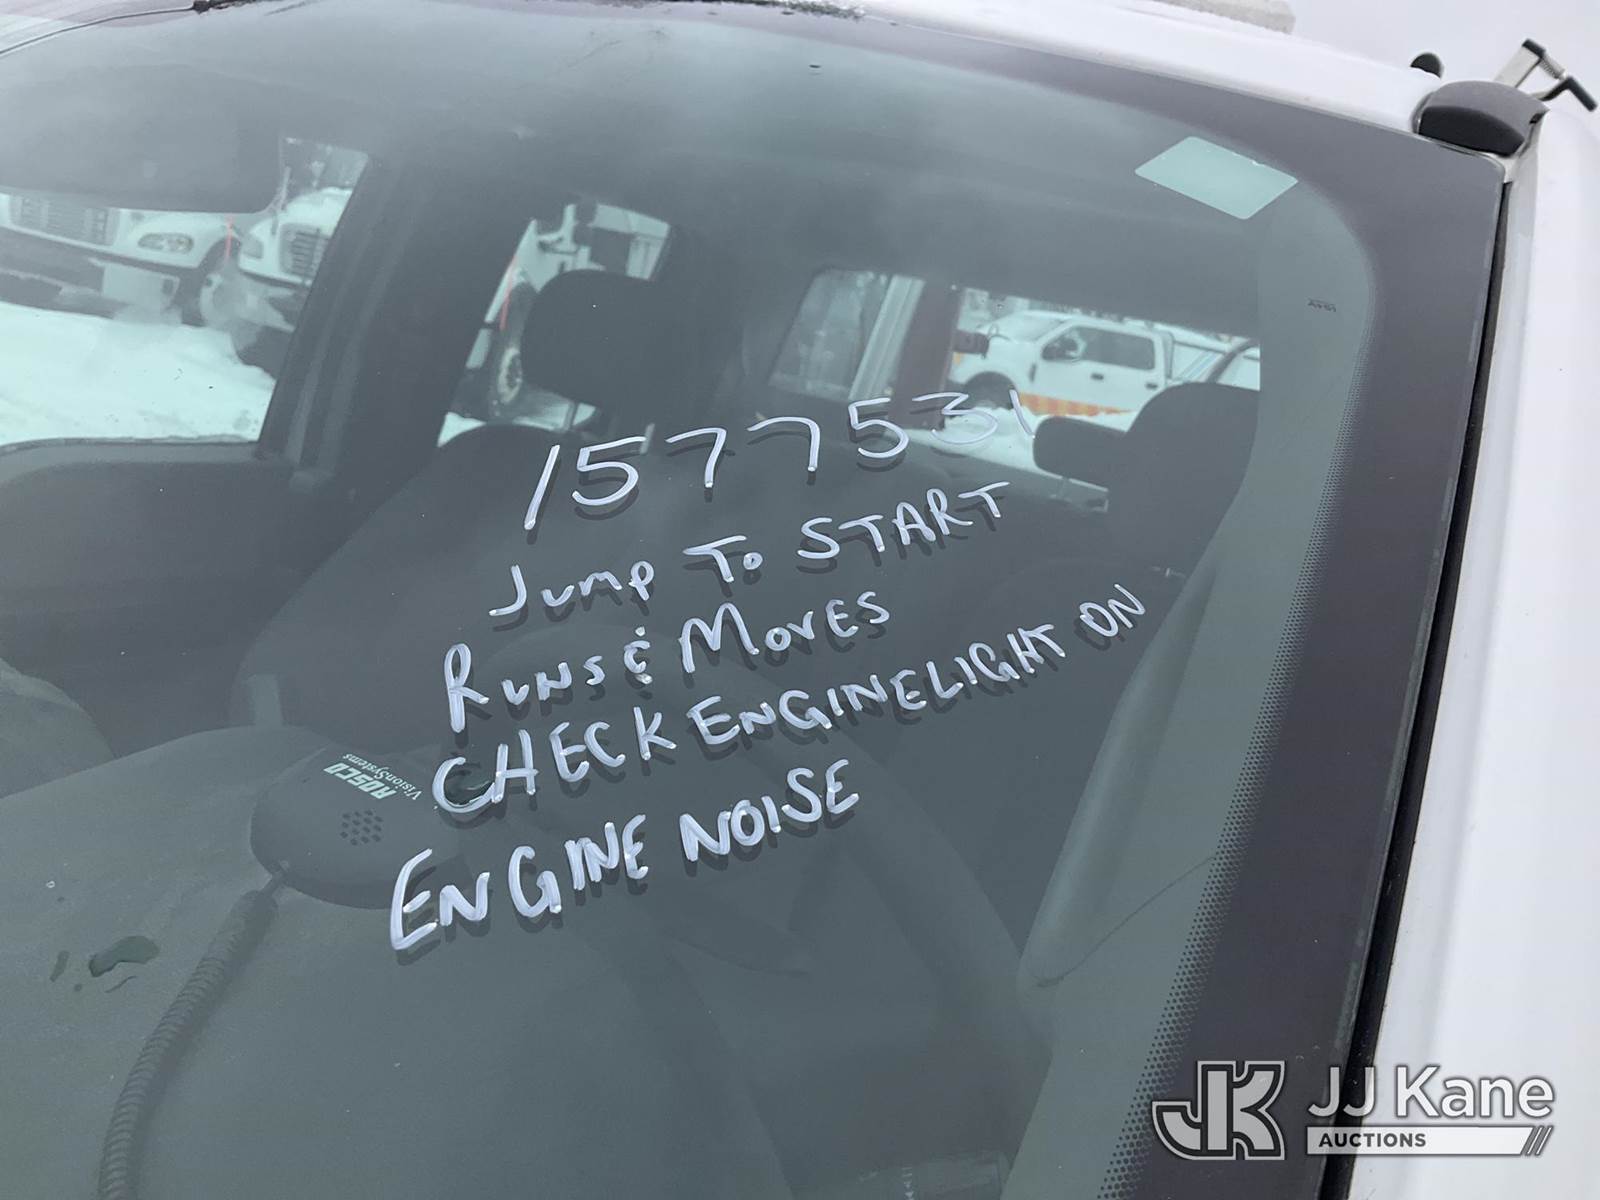 1577531
Jump To START
RUNS & MOVES
CHECK ENGINELIGHT ON
ENGINE NOISE
ROSCO
VisionSystems
JJ Kane
AUCTIONS